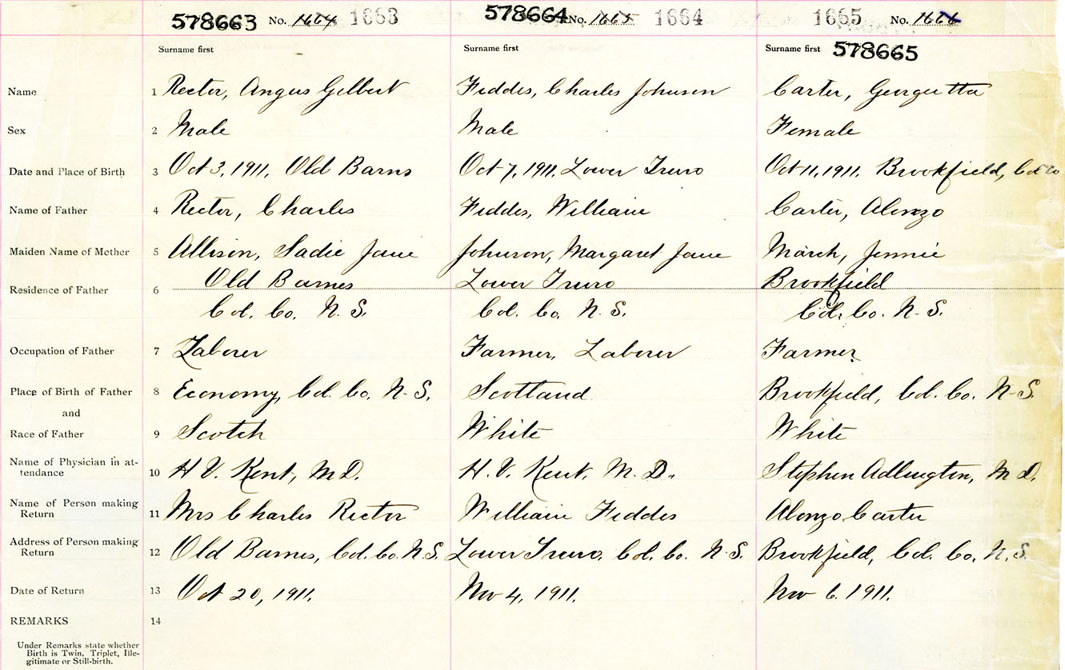 578663 No. 1664 1663 578664 No. 1665 1664 1665 No. 1666
Surname first Surname first Surname first 578665
Name 1 Rector, Angus Gilbert Fiddes, Charles Johnson Carter, Georgietta
Sex 2 Male Male Female
Date and Place of Birth 3 Oct 3, 1911, Old Barns Oct 7, 1911, Lower Truro Oct 11, 1911. Brookfield, Col Co
Name of Father 4 Rector, Charles Fiddes, William Carter, Alonzo
Maiden Name of Mother 5 Allison, Sadie Jane Johnson, Margaret Jane March, Jennie
Residence of Father 6 Old Barnes Lower Truro Brookfield
Col. Co. N. S. Col. Co. N. S. Col. Co. N. S.
Occupation of Father 7 Laborer Farmer, Laborer Farmer
Place of Birth of Father 8 Economy, Col. Co. N. S. Scotland Brookfield, Col. Co. N. S.
and
Race of Father 9 Scotch White White
Name of Physician in at-
tendance 10 H V. Kent, M D. H. V. Kent, M. D. Stephen Adlington, M D.
Name of Person making
Return 11 Mrs Charles Rector William Fiddes Alonzo Carter
Address of Person making
Return 12 Old Barnes, Col. Co. N. S. Lower Truro, Col. Co. N. S. Brookfield, Col. Co. N. S.
Date of Return 13 Oct 20, 1911. Nov 4, 1911. Nov 6. 1911.
REMARKS 14
Under Remarks state whether
Birth is Twin, Triplet, Ille-
gitimate or Still-birth.